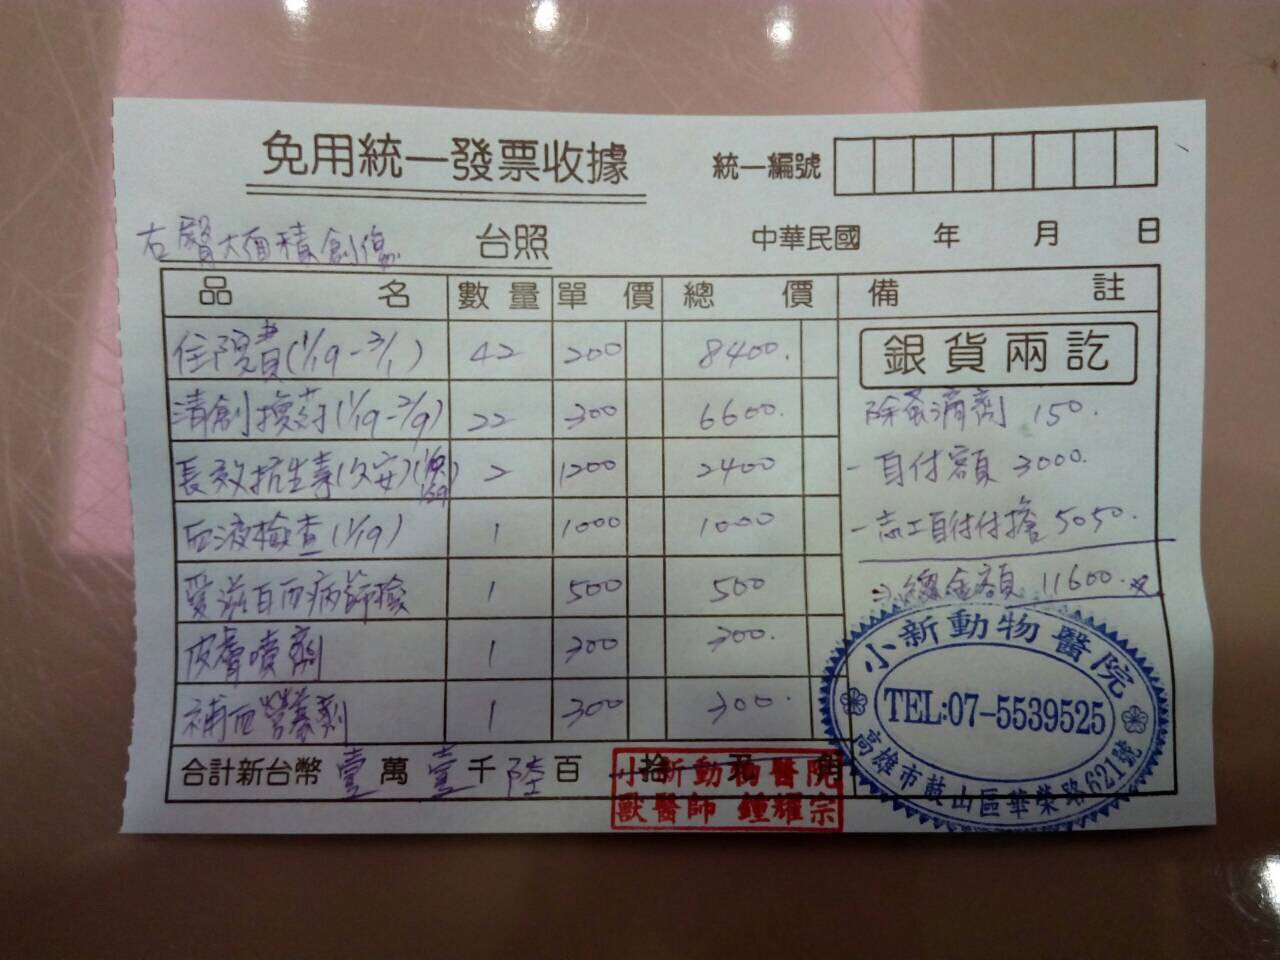 免用統一發票收據
統一編號
右臀大面積創傷 台照
中華民國 年 月 日
品名 數量 單價 總價 備註
住院費(1/19-3/1) 42 200 8400.
銀貨兩訖
清創換葯(1/19-2/9) 22 300 6600.
除蚤滴劑 150.
長效抗生素(久安) 2 1200 2400
-自付額 3000.
血液檢查(1/19) 1 1000 1000
-志工自付付擔 5050.
愛滋白血病篩檢 1 500 500
總金額 11600.
皮膚噴劑 1 300 300.
補血營養劑 1 300 300.
合計新台幣 壹萬 壹千 陸百 拾 元 角
小新動物醫院
獸醫師 鍾耀宗
小新動物醫院
TEL:07-5539525
高雄市鼓山區華榮路621號